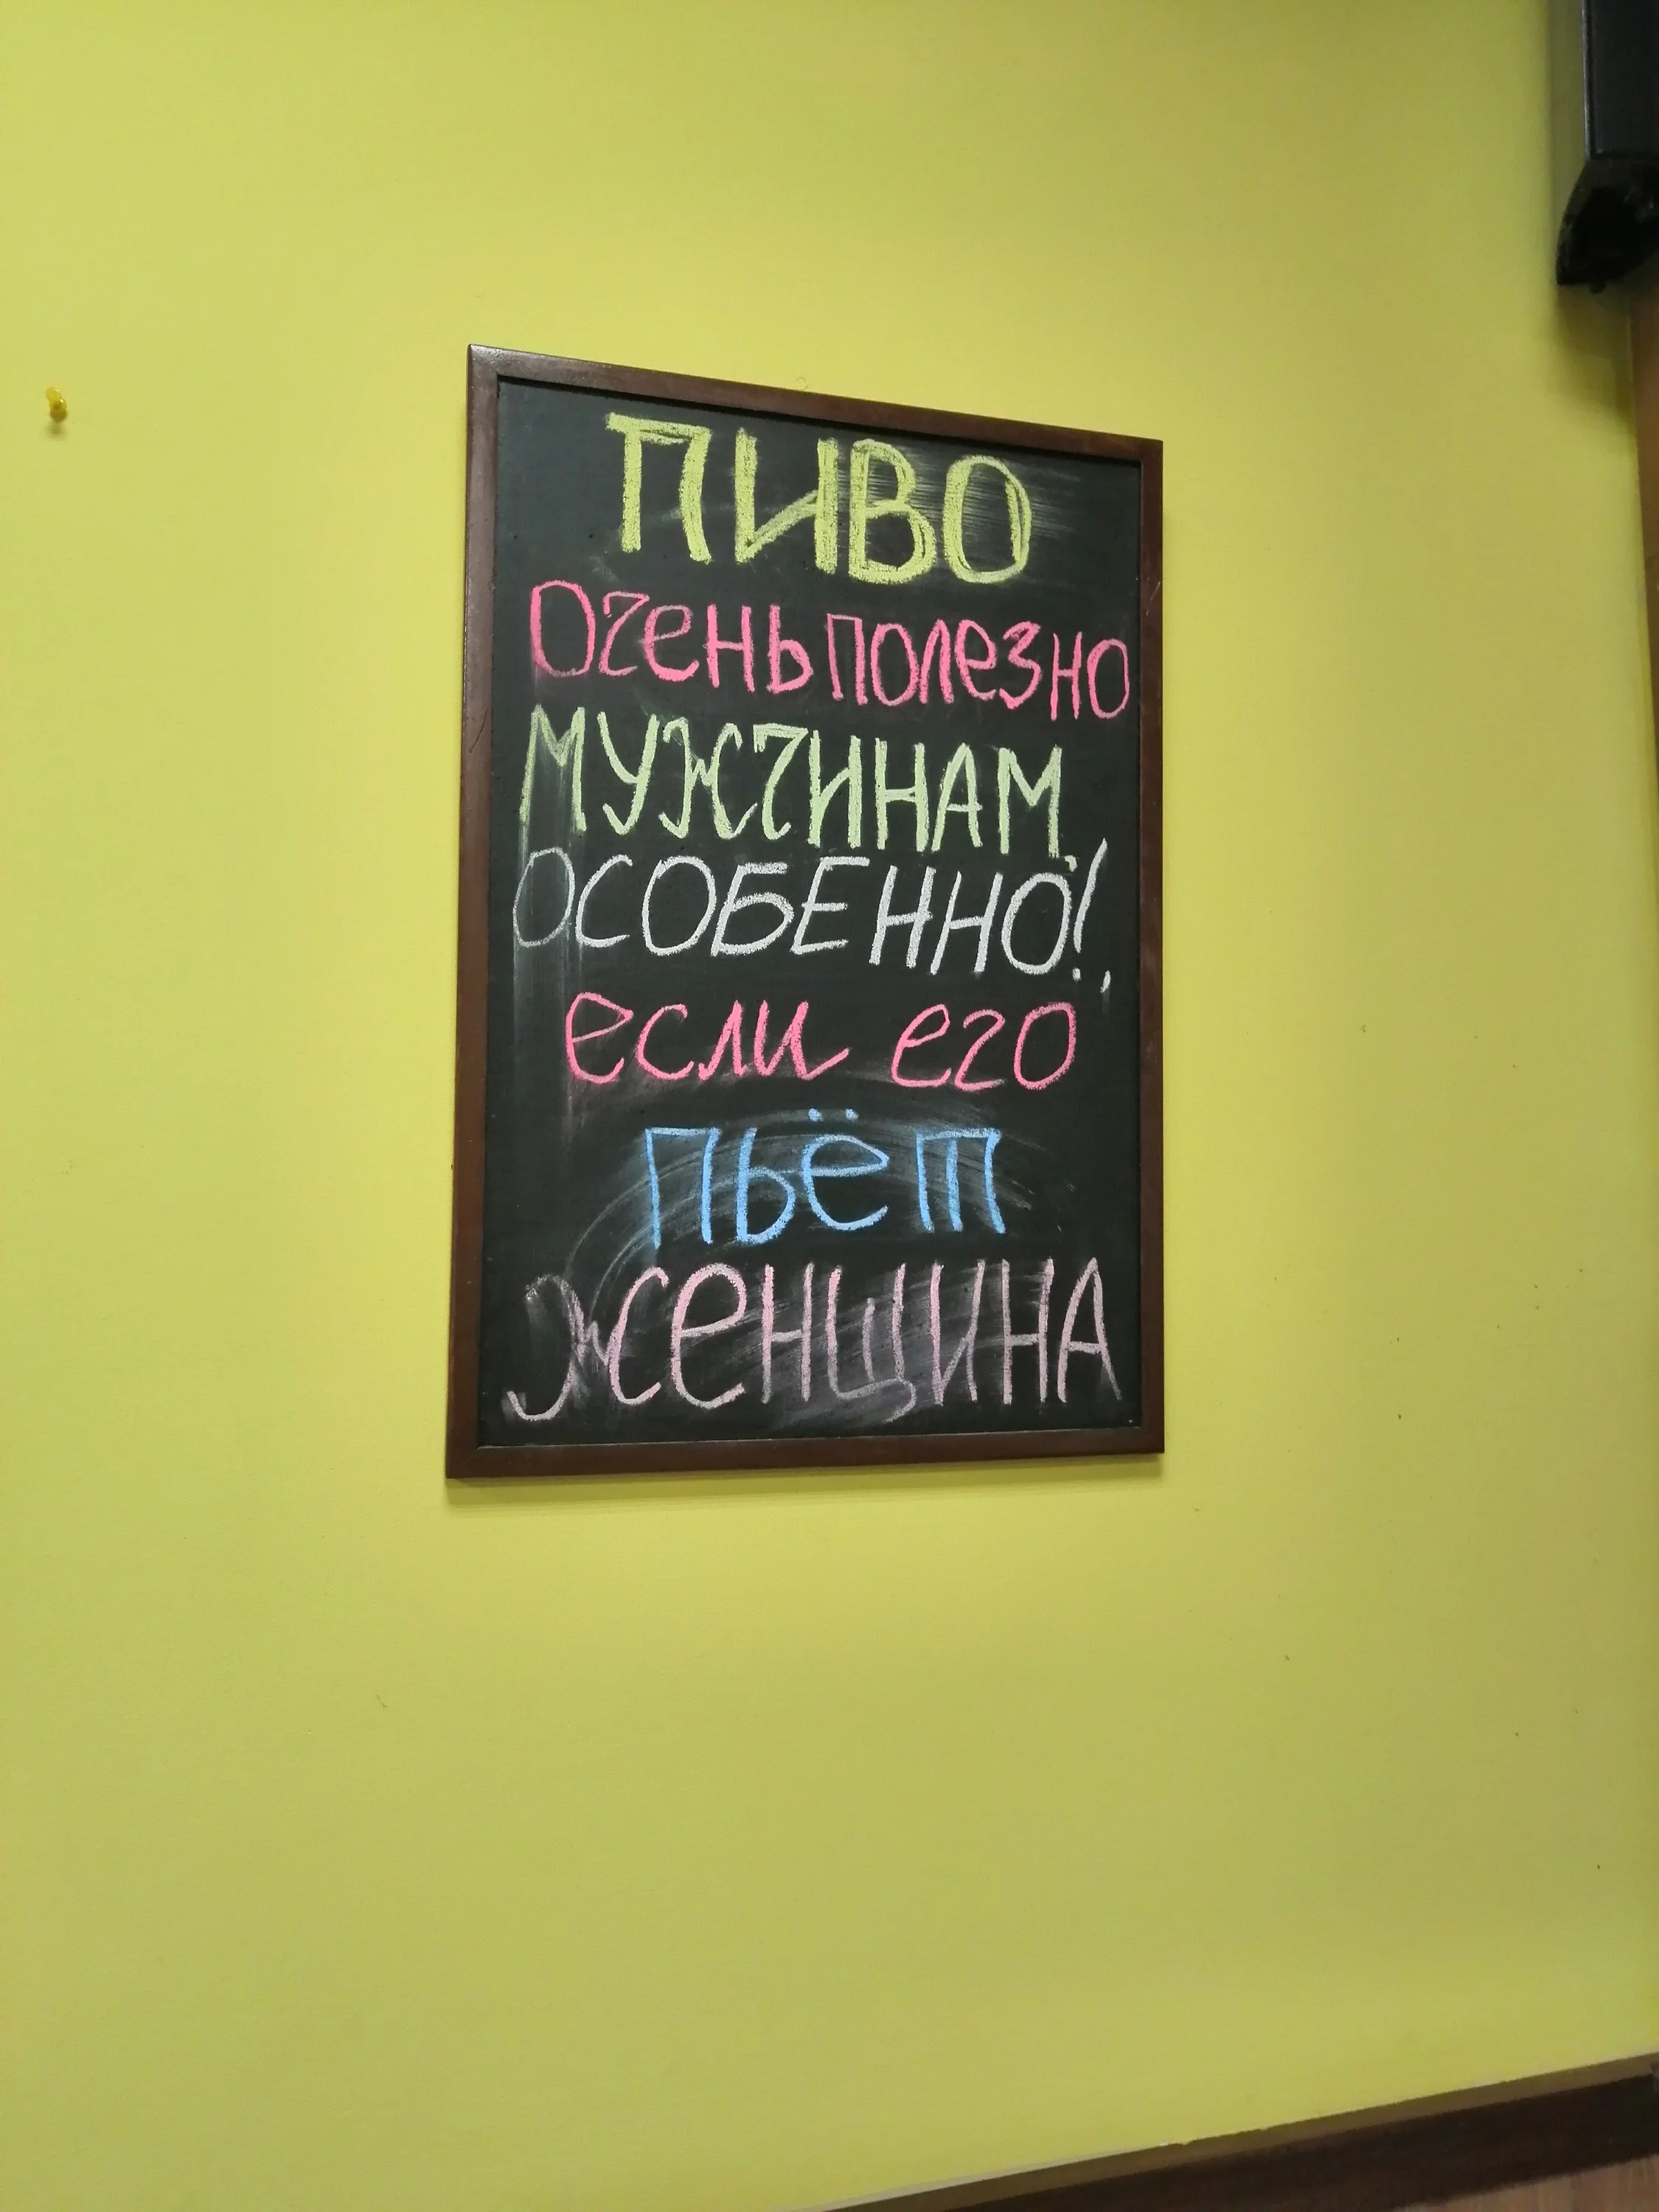 ПИВО
Очень полезно
МУЖЧИНАМ,
ОСОБЕННО!,
если его
пьёт
женщина